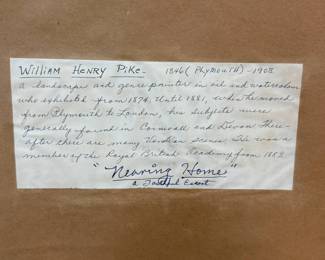 William Henry Pike - 1846 (Plymouth) - 1908
a landscape and genre painter in oil and watercolour
who exhibited from 1874. Until 1881, when he moved
from Plymouth to London, his subjects were
generally found in Cornwall and Devon. There-
after there are many Venetian scenes. He was a
member of the Royal British Academy from 1889
"Nearing Home"
a Faithful Escort